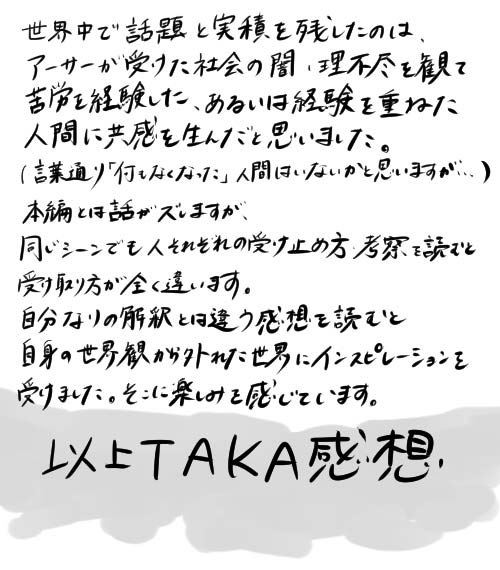 世界中で話題と実積を残したのは、
アーサーが受けた社会の闇・理不尽を観て
苦労を経験した、あるいは経験を重ねた
人間に共感を生んだと思いました。
(言葉通り「何もなくなった」人間はいないかと思いますが…)
本編とは話がズレますが、
同じシーンでも人それぞれの受け止め方・考察を読むと
受け取り方が全く違います。
自分なりの解釈とは違う感想を読むと
自身の世界観から外れた世界にインスピレーションを
受けました。そこに楽しみを感じています。
以上TAKA感想、